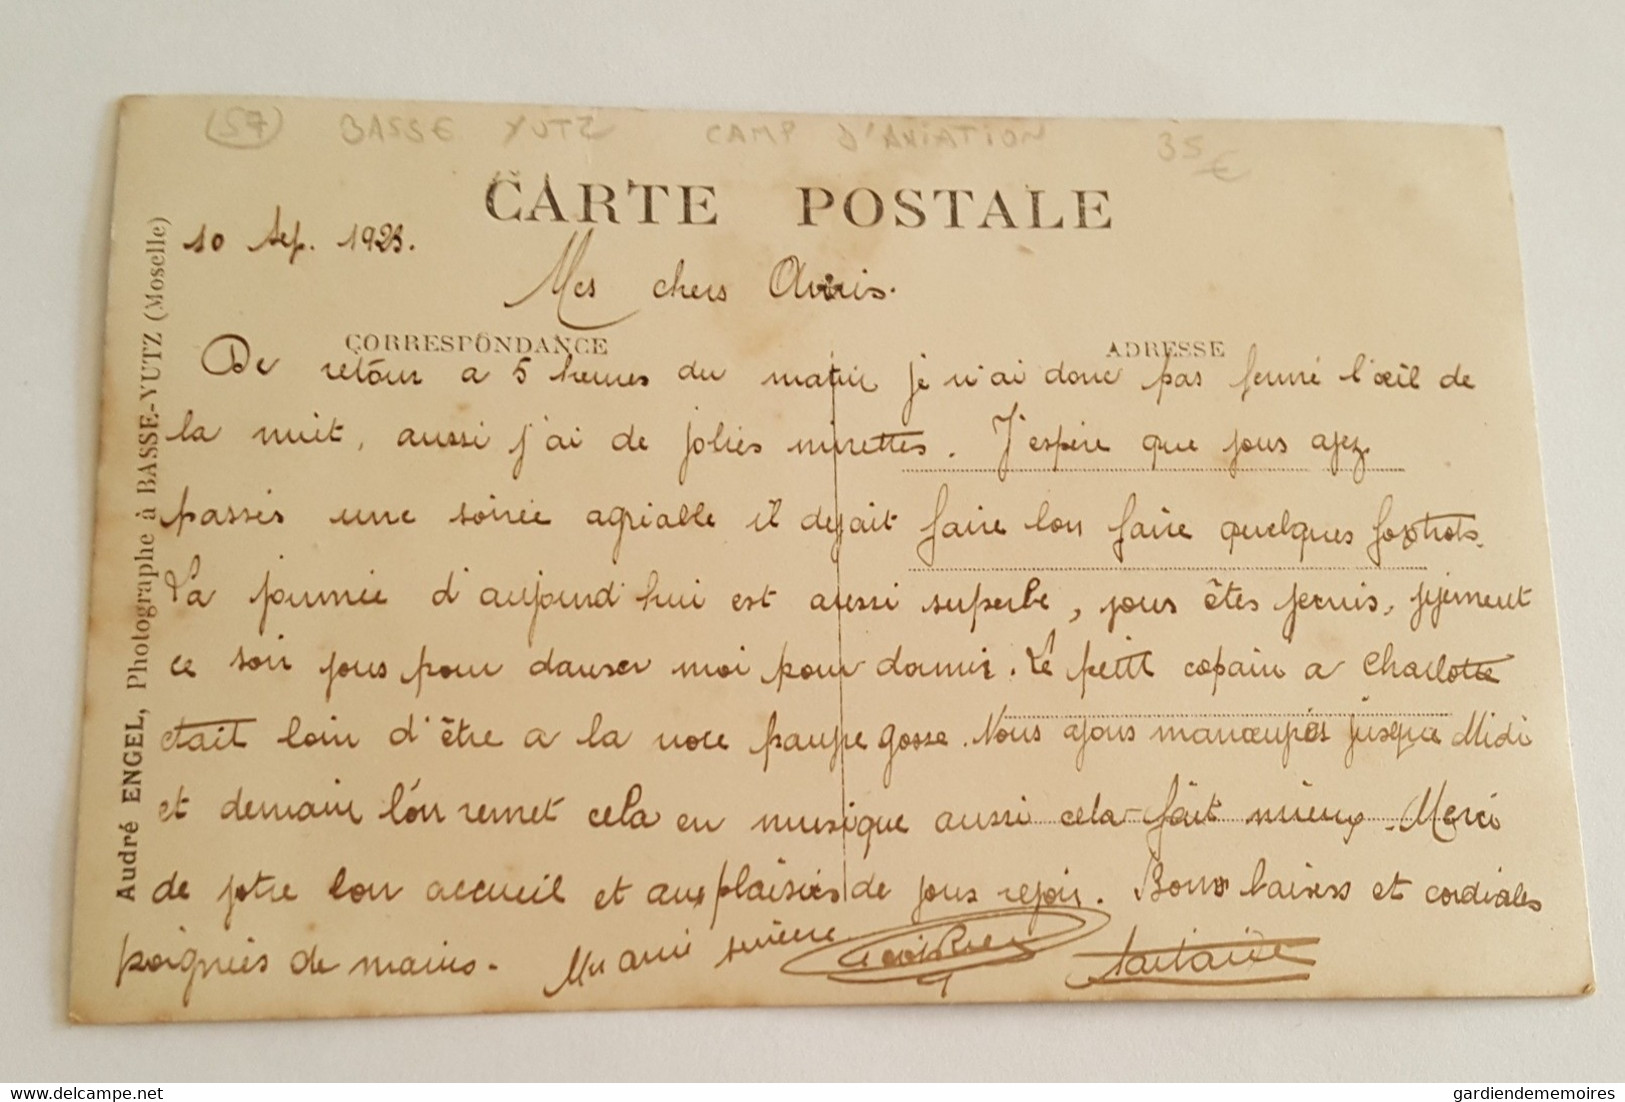 (57) BASSE YUTZ CAMP D'AVIATION 35 €
CARTE POSTALE
10 Sep. 1923.
Mes chers Amis.
CORRESPONDANCE
ADRESSE
De retour a 5 heures du matin je n'ai donc pas fermé l'œil de
la nuit, aussi j'ai de jolies mirettes. J'espère que vous avez
passés une soirée agréable il devait faire bon faire quelques foxtrots.
La journée d'aujourd'hui est aussi superbe, vous êtes vernis, vivement
ce soir vous pour danser moi pour dormir. Le petit copain a Charlotte
était loin d'être a la noce pauvre gosse. Nous avons manœuvrés jusque Midi
et demain l'on remet cela en musique aussi cela fait mieux. Merci
de votre bon accueil et aux plaisirs de vous revoir. Bons baisers et cordiales
poignées de mains. Un ami sincère
André ENGEL, Photographe à BASSE-YUTZ (Moselle)
delcampe.net
gardiendememoires